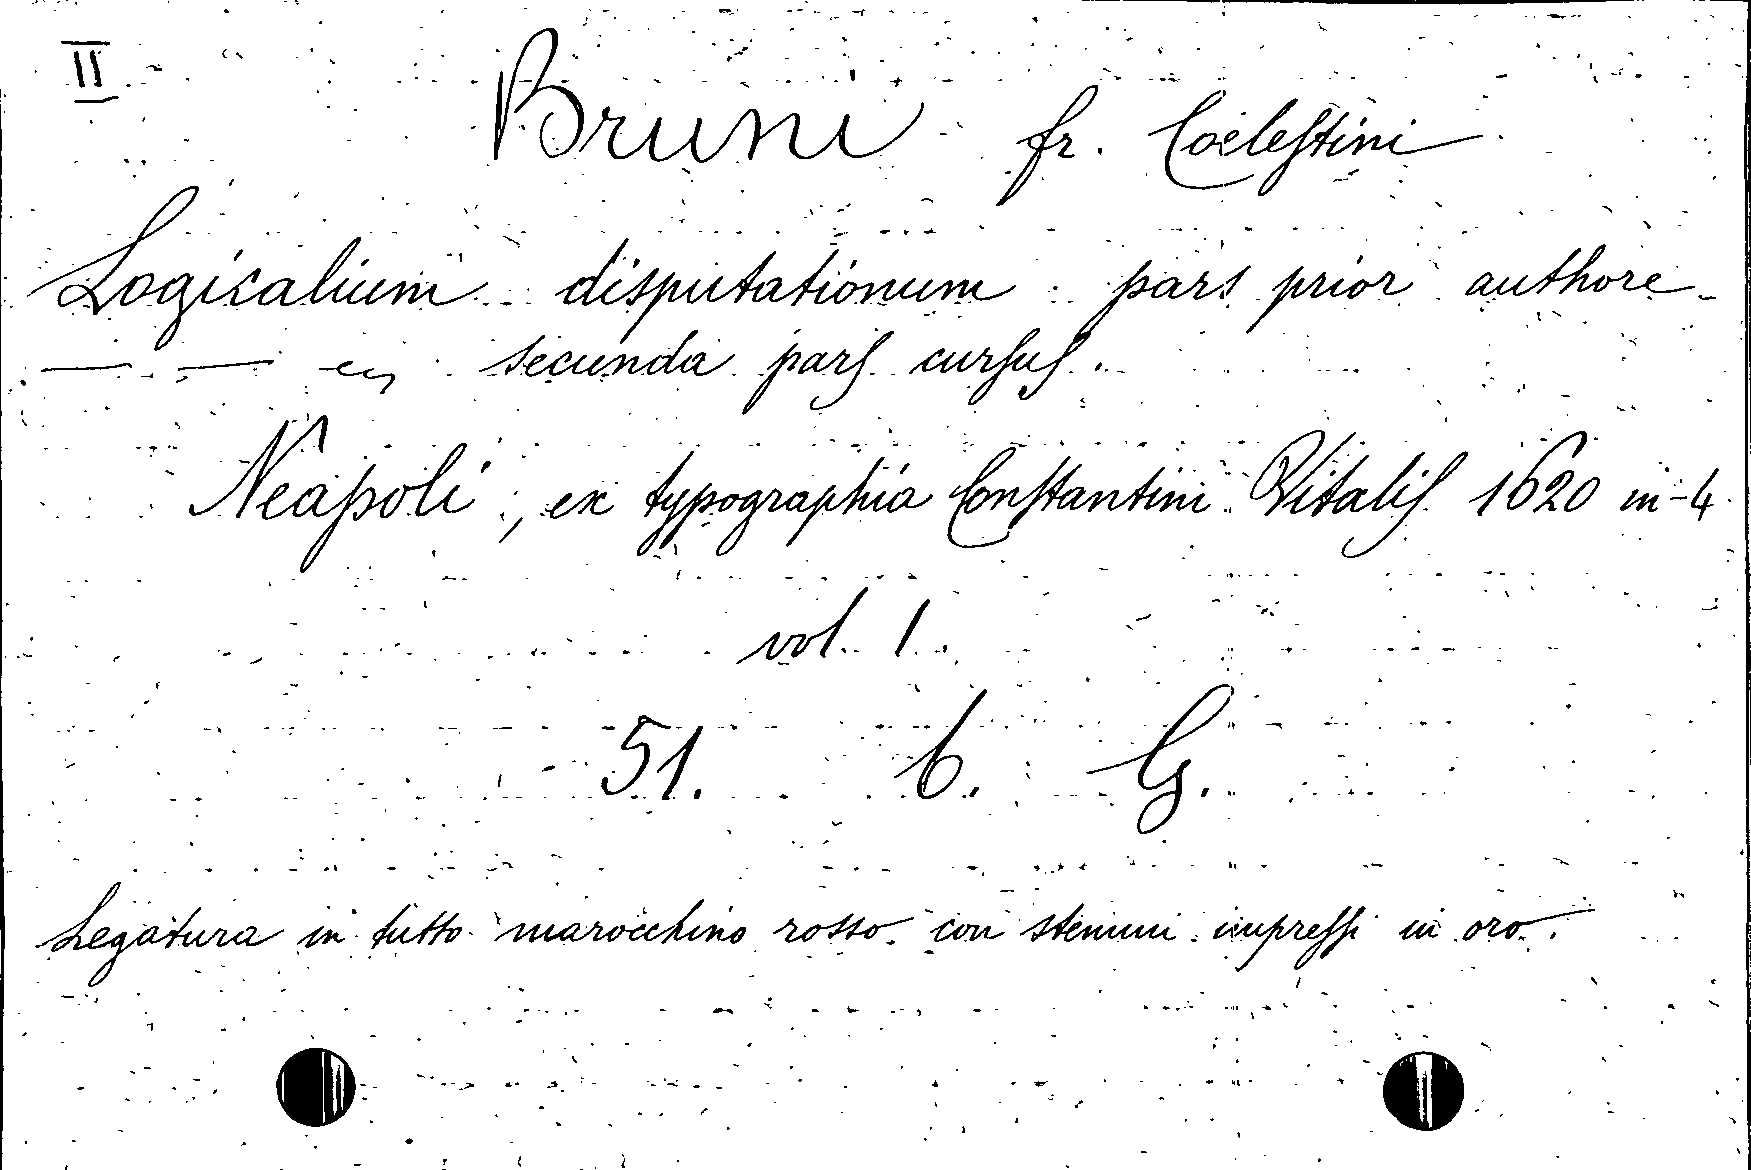 II
Bruni fr. Coelestini
Logicalium disputationum pars prior authore
— — — secunda pars cursus.
Neapoli, ex typographia Constantini Vitalis 1620 in-4
vol. 1.
51. 6. G.
Legatura in tutto marocchino rosso con stemmi impressi in oro.